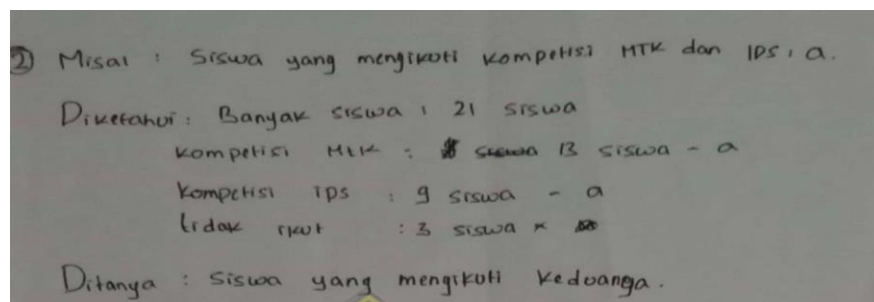 2) Misal : Siswa yang mengikuti kompetisi MTK dan IPS : a.
Diketahui : Banyak siswa : 21 siswa
kompetisi MtK : 13 siswa - a
kompetisi ips : 9 siswa - a
tidak ikut : 3 siswa
Ditanya : Siswa yang mengikuti keduanga.